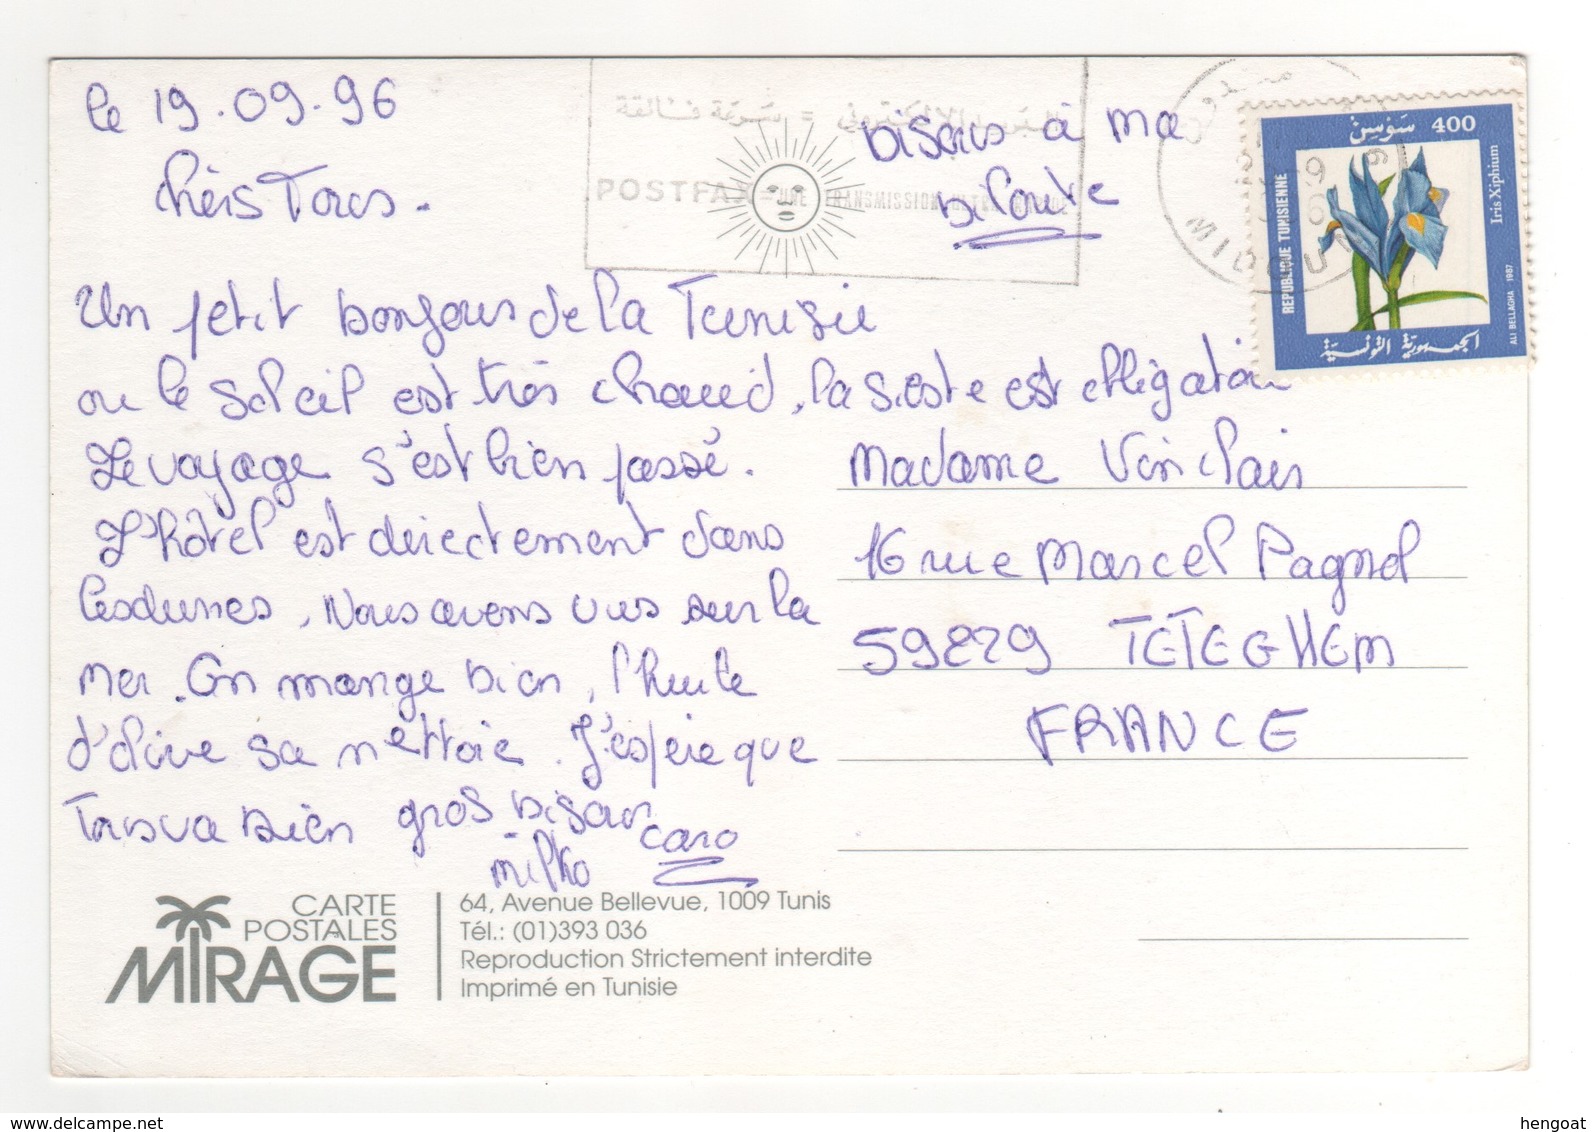 le 19.09.96
chers Tous.
Un petit bonjour de la Tunisie
ou le soleil est très chaud, la sieste est obligatoire
Le voyage s'est bien passé.
L'hôtel est directement dans
les dunes, Nous avons vus sur la
mer. On mange bien, l'huile
d'olive sa nettoie. J'espère que
Tous va bien gros bisous
caro
milko
bisous à ma
POSTFAX = UNE TRANSMISSION
سرعة فائقة =
MIDOUN
400 سوسن
REPUBLIQUE TUNISIENNE
Iris Xiphium
ALI BELLAGHA 1987
الجمهورية التونسية
Madame Vinclair
16 rue Marcel Pagnol
59229 TETEGHEM
FRANCE
CARTE
POSTALES
MIRAGE
64, Avenue Bellevue, 1009 Tunis
Tél.: (01)393 036
Reproduction Strictement interdite
Imprimé en Tunisie
delcampe.net
hengoat